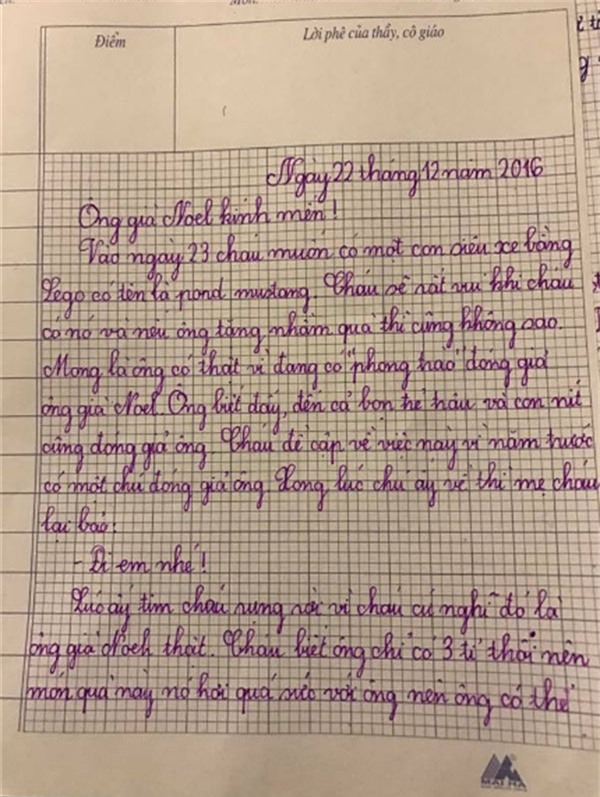 Điểm
Lời phê của thầy, cô giáo
Ngày 22 tháng 12 năm 2016
Ông già Noel kính mến!
Vào ngày 23 cháu muốn có một con siêu xe bằng
Lego có tên là pond mustang. Cháu sẽ rất vui khi cháu
có nó và nếu ông tặng nhầm quà thì cũng không sao.
Mong là ông có thật vì đang có "phong trào" đóng giả
ông già Noel. Ông biết đấy, đến cả bọn trẻ trâu và con nít
cũng đóng giả ông. Cháu đề cập về việc này vì năm trước
có một chú đóng giả ông. Xong lúc chú ấy về thì mẹ cháu
lại bảo:
- Đi em nhé!
Lúc ấy tim cháu rụng rời vì cháu cứ nghĩ đó là
ông già Noel thật. Cháu biết ông chỉ có 3 tỉ thôi nên
món quà này nó hơi quá sức với ông nên ông có thể
MAI HA